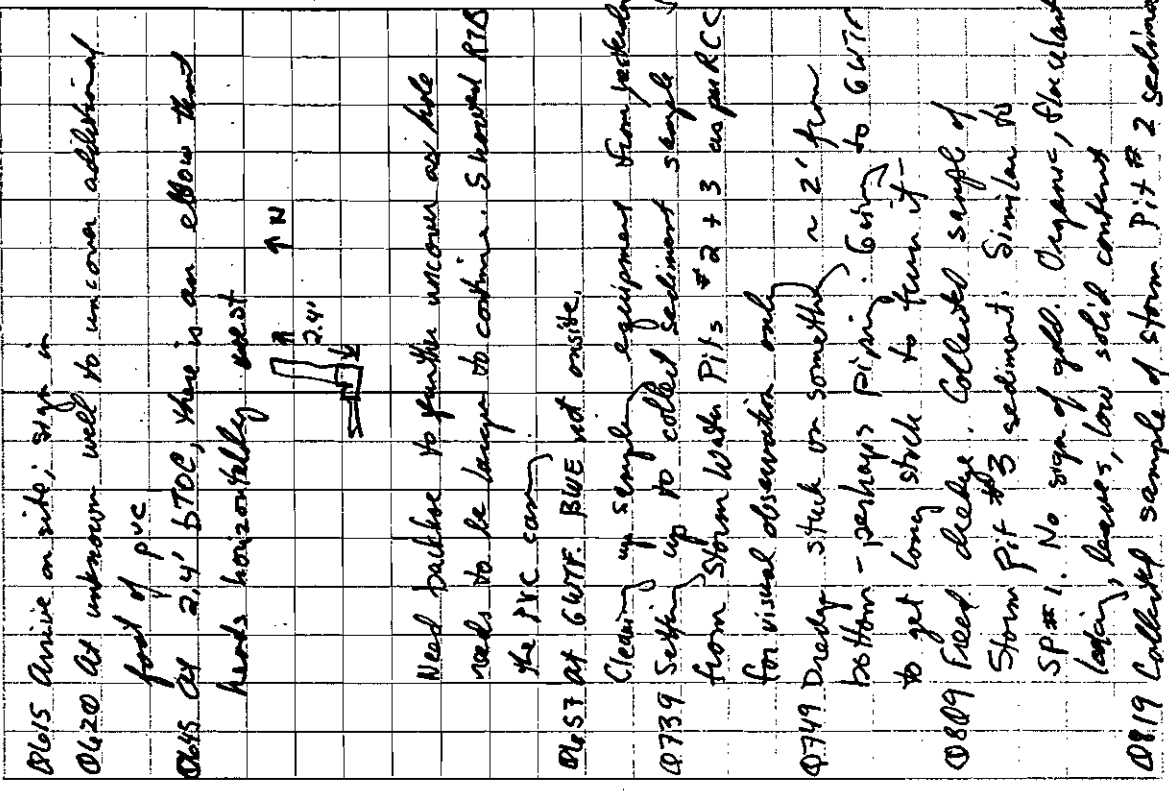 0615 Arrive on site; sign in
0620 At unknown well to uncover additional
foot of PVC
0645 At 2.4' BTOC, there is an elbow that
heads horizontally west
↑ N
2.4'
Need backhoe to further uncover as hole
needs to be larger to continue. Showed RTB
the PVC casing
0657 At GWTF. BWE not onsite.
Cleaning up sampling equipment from yesterday
0739 Setting up to collect sediment sample
from Storm Water Pits #2 + 3 as per RCC
for visual observation only
0749 Dredge stuck on something ~ 2' from
bottom - perhaps piping. Going to GWTF
to get long stick to turn it -
0809 Freed dredge. Collected sample of
Storm Pit #3 sediment. Similar to
SP#1. No sign of gold. Organic, floculant
looking, leaves, low solid content
0819 Collected sample of storm Pit #2 sediment